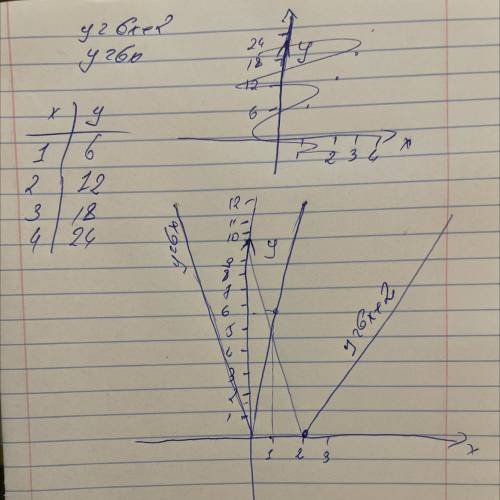 y=6x+2
y=6x
x y
1 6
2 12
3 18
4 24
24
18
12
6
y
1 2 3 4 x
12
11
10
9
8
7
6
5
4
3
2
1
y
y=6x
y=6x+2
1 2 3 x